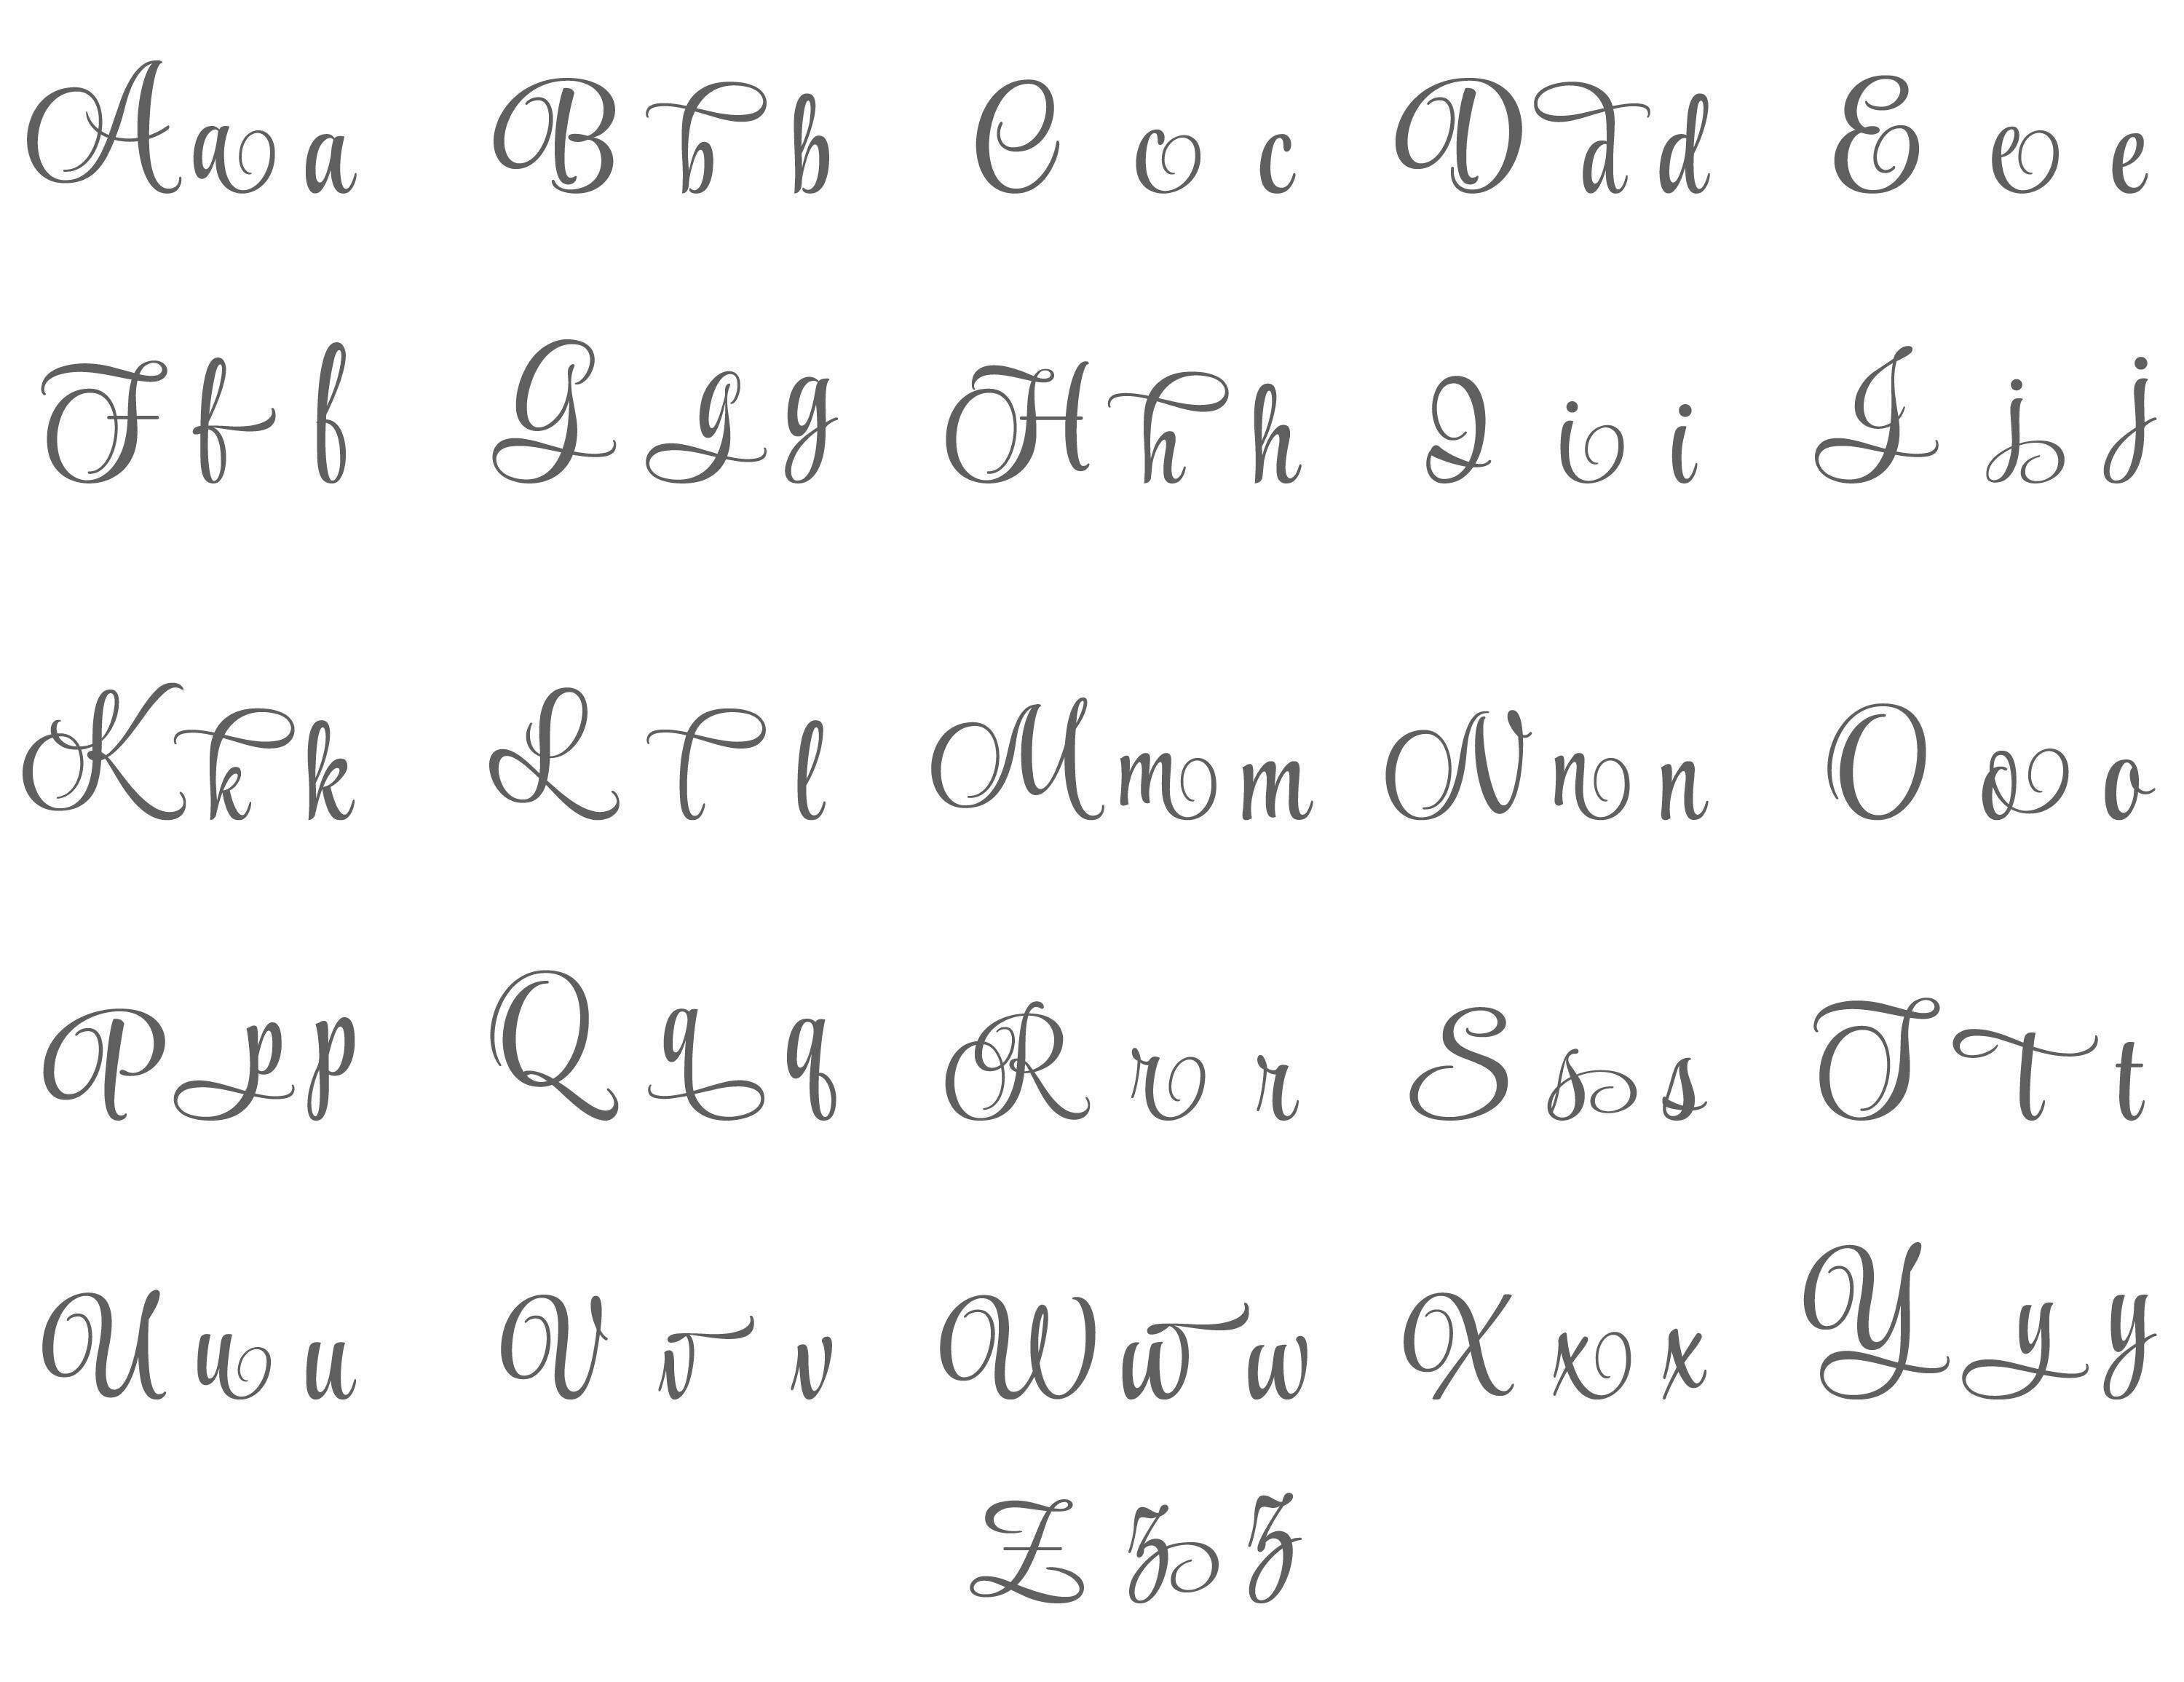 A a a B b b C c c D d d E e e
F f f G g g H h h I i i J j j
K k k L l l M m m N n n O o o
P p p Q q q R r r S s s T t t
U u u V v v W w w X x x Y y y
Z z z